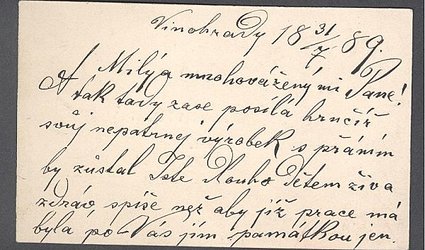 Vinohrady 18 31/7 89.
Milý a mnohovážený mi Pane!
A tak tady zase posílá hrnčíř
svůj nepatrnej výrobek s přáním
by zůstal Dětem živ a
zdráv spíše než aby již prace má
byla po Vás jím památkou jen